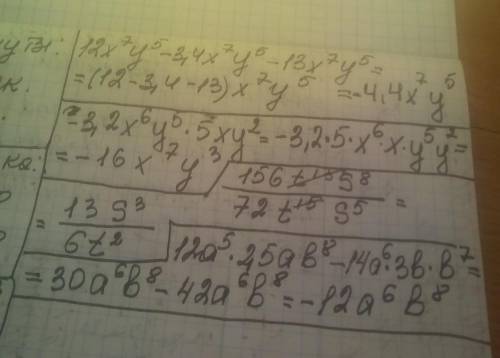 ути:
12x⁷y⁵-3,4x⁷y⁵-13x⁷y⁵=
=(12-3,4-13)x⁷y⁵ =-4,4x⁷y⁵
-3,2x⁶y⁵·5xy²=-3,2·5·x⁶·x·y⁵y²=
=-16x⁷y³
156t¹³s⁸/72t¹⁵s⁵=
=13s³/6t²
12a⁵·2,5ab⁸-14a⁶·3b·b⁷=
=30a⁶b⁸-42a⁶b⁸=-12a⁶b⁸